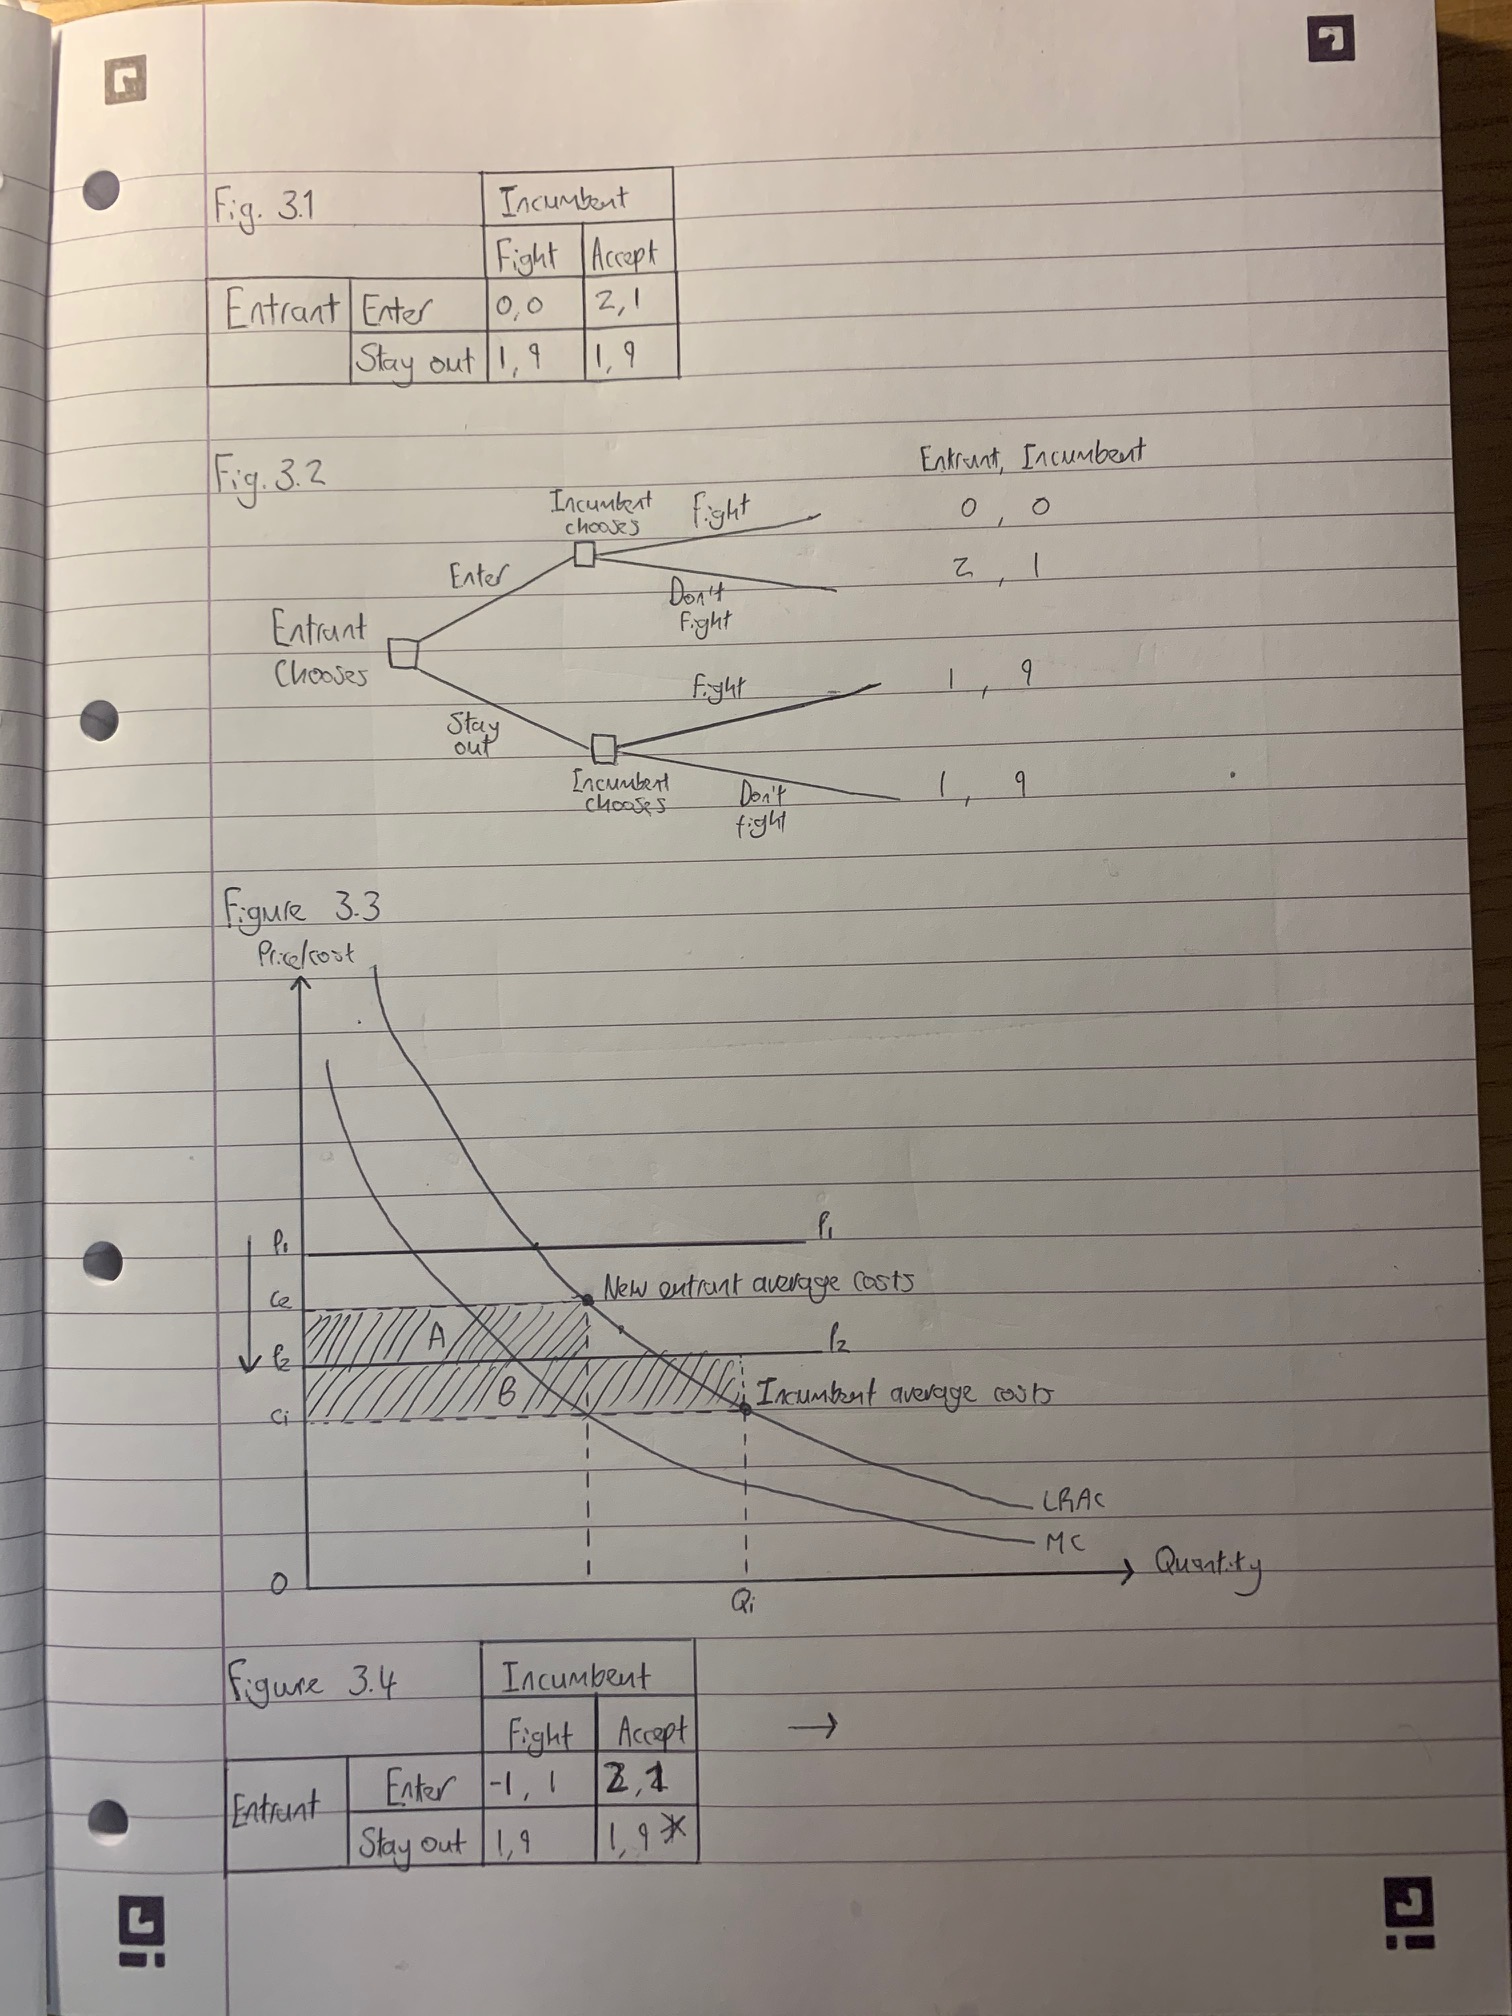 Fig. 3.1
Incumbent
Fight Accept
Entrant Enter 0,0 2,1
Stay out 1,9 1,9
Fig. 3.2
Entrant, Incumbent
Incumbent chooses
Fight 0, 0
Enter
Don't fight 2, 1
Entrant
Chooses
Fight 1, 9
Stay out
Incumbent chooses
Don't fight 1, 9
Figure 3.3
Price/cost
P₁ P₁
Ce New entrant average costs
A
P₂ P₂
B
Ci Incumbent average costs
LRAC
MC
O Quantity
Qi
Figure 3.4
Incumbent
Fight Accept
Entrant Enter -1, 1
Stay out 1,9 1,9 *